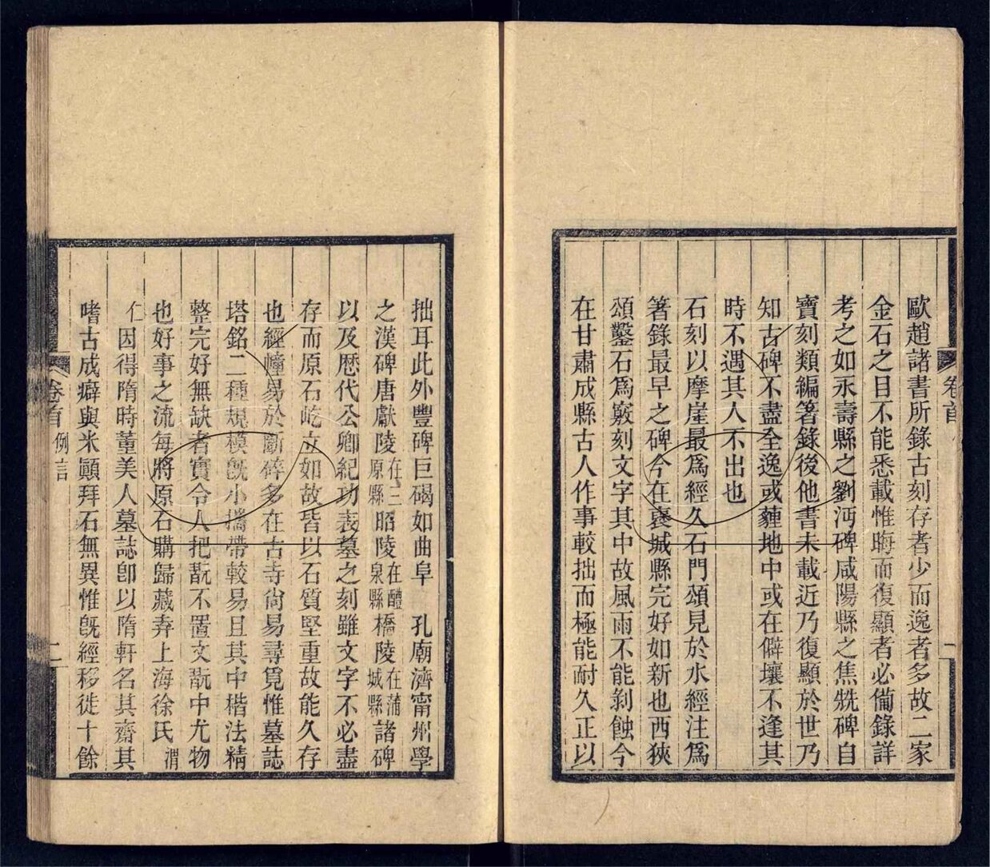 歐趙諸書所錄古刻存者少而逸者多故二家
金石之目不能悉載惟晦而復顯者必備錄詳
考之如永壽縣之劉沔碑咸陽縣之焦兟碑自
寶刻類編箸錄後他書未載近乃復顯於世乃
知古碑不盡全逸或薶地中或在僻壤不逢其
時不遇其人不出也
石刻以摩崖最爲經久石門頌見於水經注爲
箸錄最早之碑今在襃城縣完好如新也西狹
頌鑿石爲竅刻文字其中故風雨不能剝蝕今
在甘肅成縣古人作事較拙而極能耐久正以
卷首
一
拙耳此外豐碑巨碣如曲阜 孔廟濟甯州學
之漢碑唐獻陵在三原縣昭陵在醴泉縣橋陵在蒲城縣諸碑
以及歷代公卿紀功表墓之刻雖文字不必盡
存而原石屹立如故皆以石質堅重故能久存
也經幢易於斷碎多在古寺尙易尋覓惟墓誌
塔銘二種規模旣小攜帶較易且其中楷法精
整完好無缺者實令人把翫不置文翫中尤物
也好事之流每將原石購歸藏弆上海徐氏渭
仁因得隋時董美人墓誌卽以隋軒名其齋其
嗜古成癖與米顚拜石無異惟旣經移徙十餘
卷首 例言
二